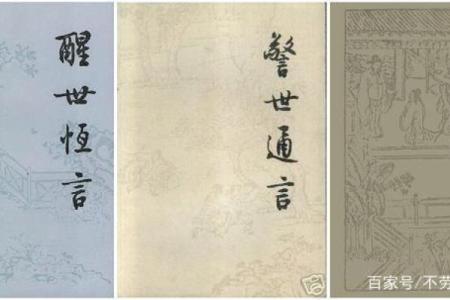 醒世恆言
警世通言
百家号/不劳